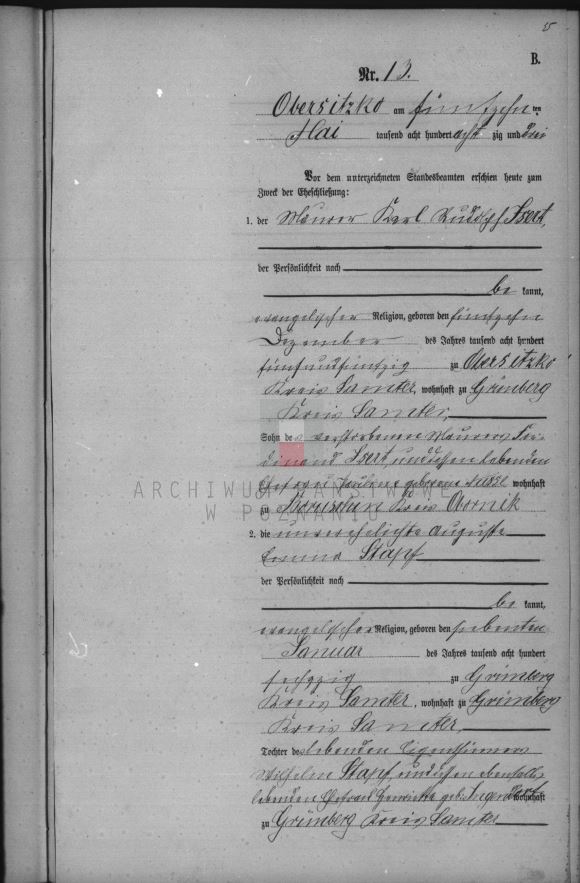 B.
Nr. 13.
Obersitzko am fünfzehn ten
Mai tausend acht hundert acht zig und drei
Vor dem unterzeichneten Standesbeamten erschien heute zum
Zweck der Eheschließung:
1. der Maurer Karl Rudolf Isert,
der Persönlichkeit nach
be kannt,
evangelischer Religion, geboren den fünfzehn
Dezember des Jahres tausend acht hundert
fünfundfünfzig zu Obersitzko
Kreis Samter, wohnhaft zu Grünberg
Kreis Samter,
Sohn des verstorbenen Maurers Fer-
dinand Isert, und dessen lebenden
Ehefrau Pauline geborene wohnhaft
zu Kreis Obornik
2. die unverehelichte Auguste
Emma Stapf
der Persönlichkeit nach
be kannt,
evangelischer Religion, geboren den siebenten
Januar des Jahres tausend acht hundert
sechszig zu Grünberg
Kreis Samter, wohnhaft zu Grünberg
Kreis Samter,
Tochter des lebenden Eigenthümers
Wilhelm Stapf, und dessen ebenfalls
lebenden Ehefrau Henriette geb. wohnhaft
zu Grünberg Kreis Samter
ARCHIWUM PAŃSTWOWE
W POZNANIU